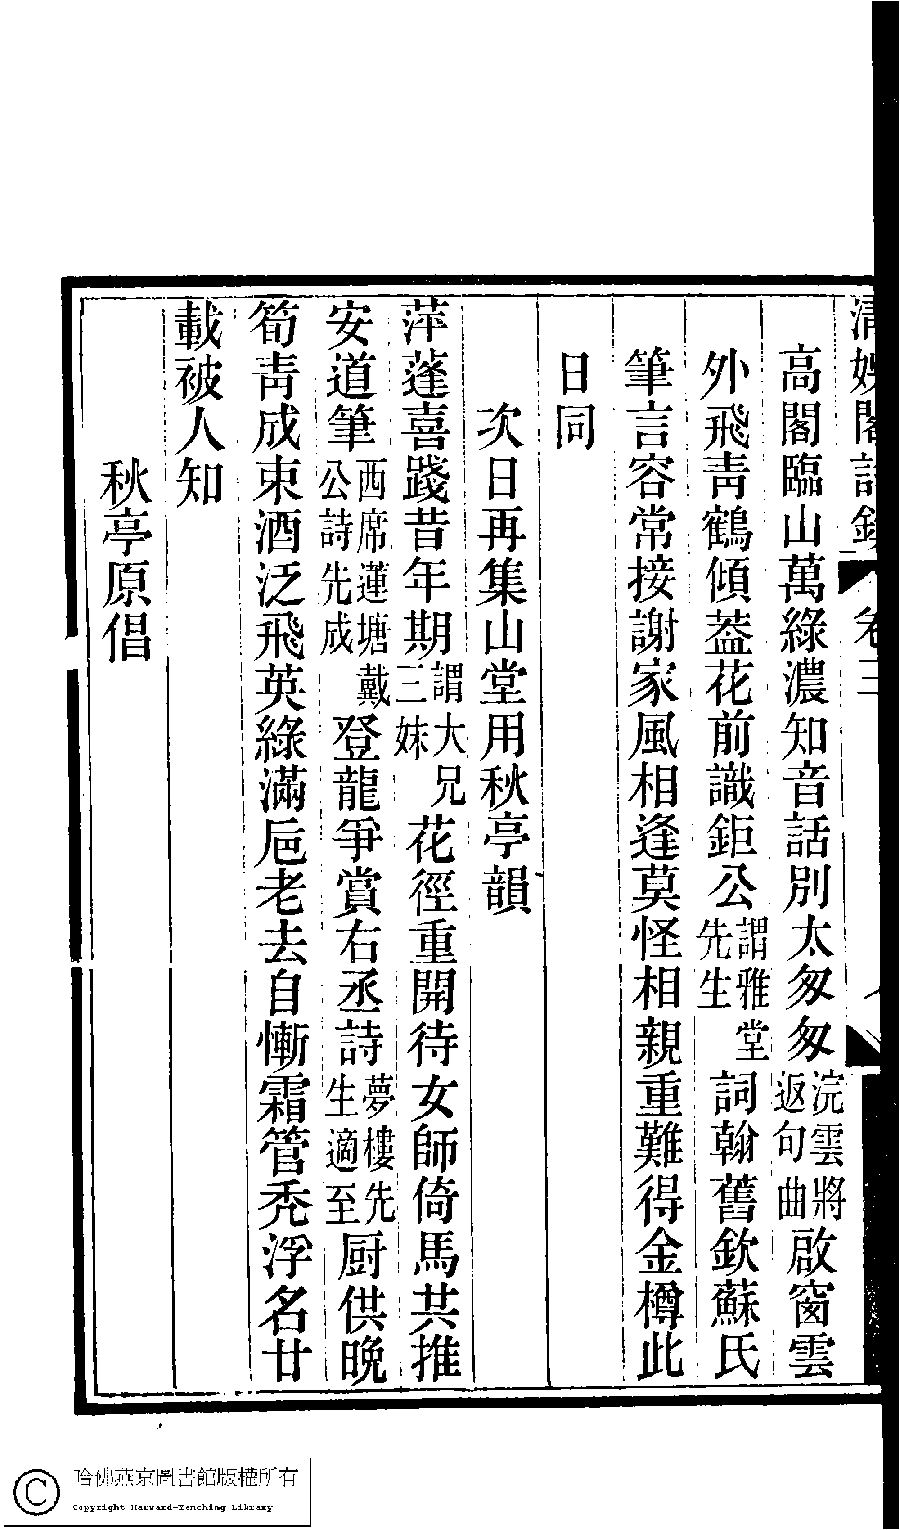 清娛閣詩鈔 卷三
高閣臨山萬綠濃知音話別太匆匆浣雲將返句曲啟窗雲
外飛靑鶴傾葢花前識鉅公謂雅堂先生詞翰舊欽蘇氏
筆言容常接謝家風相逢莫怪相親重難得金樽此
日同
次日再集山堂用秋亭韻
萍蓬喜踐昔年期謂大兄三妹花徑重開待女師倚馬共推
安道筆西席蓮塘戴公詩先成登龍爭賞右丞詩夢樓先生適至厨供晩
筍靑成束酒泛飛英綠滿巵老去自慚霜管禿浮名廿
載被人知
秋亭原倡
哈佛燕京圖書館版權所有
Copyright Harvard-Yenching Library